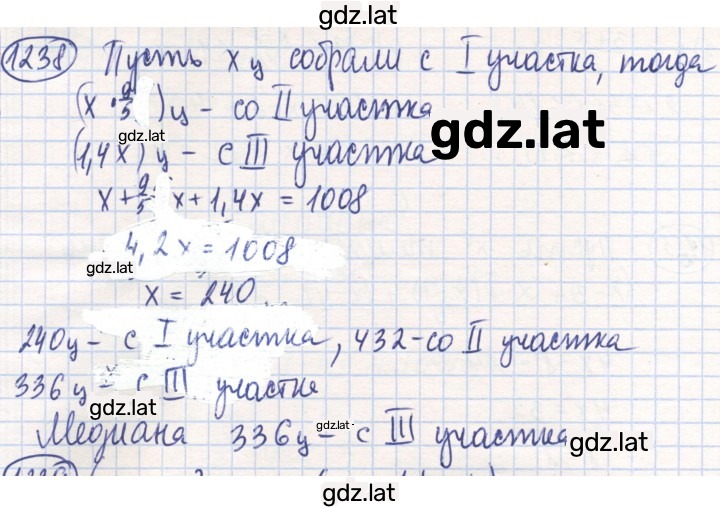 gdz.lat
1238 Пусть х ц собрали с I участка, тогда
(х · 9/5) ц - со II участка
gdz.lat
gdz.lat
(1,4х) ц - с III участка
х + 9/5 х + 1,4х = 1008
4,2х = 1008
gdz.lat
х = 240
240ц - с I участка, 432 - со II участка
336 ц - с III участка
gdz.lat
Медиана 336ц - с III участка
gdz.lat
gdz.lat
gdz.lat